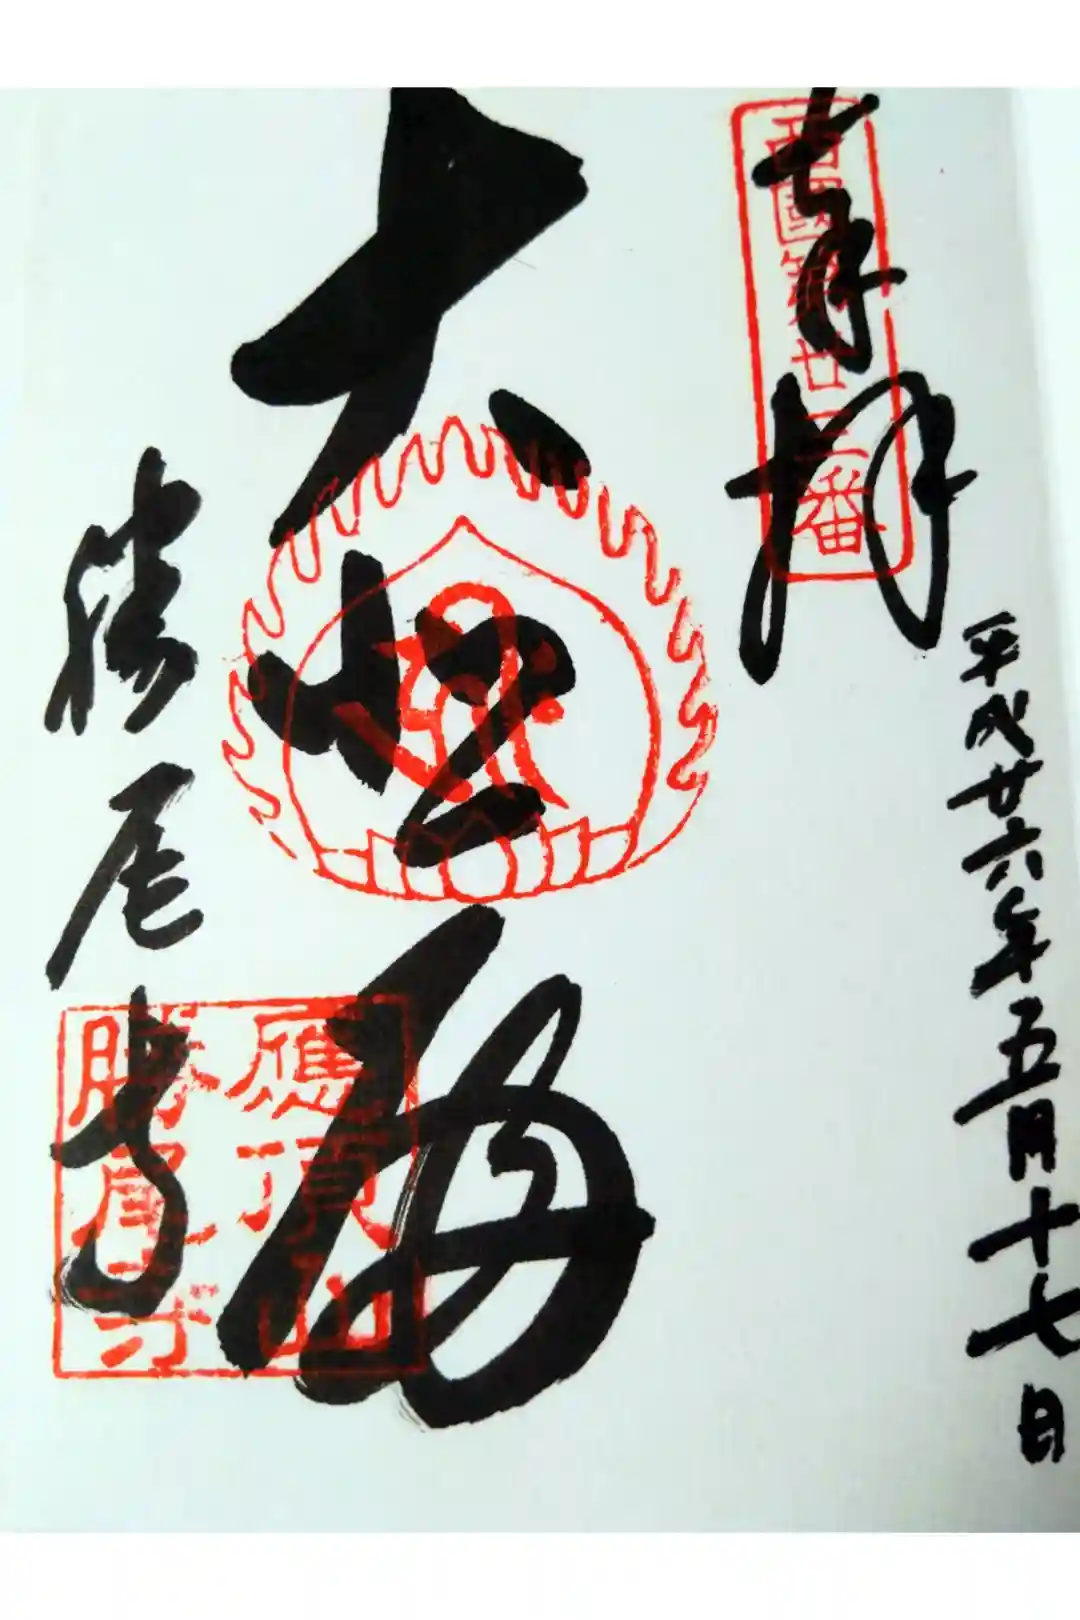 奉拝
西國第廿三番
平成廿六年五月十七日
大悲殿
勝尾寺
應頂山
勝尾寺